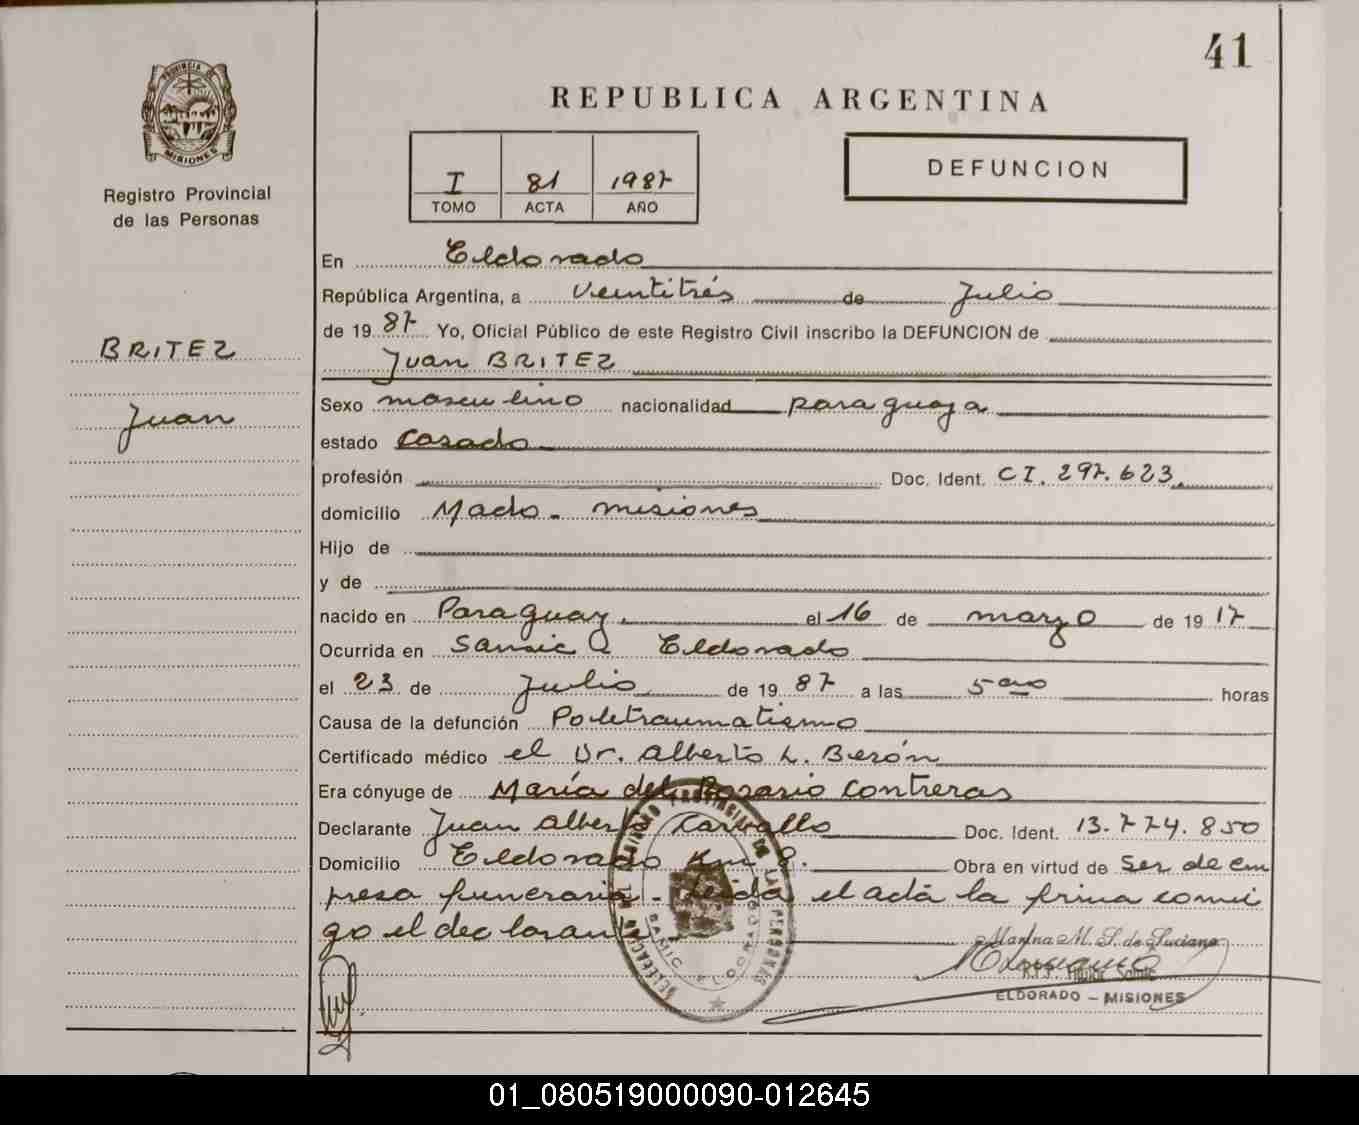 41
PROVINCIA DE
MISIONES
Registro Provincial
de las Personas
REPUBLICA ARGENTINA
I 81 1987
TOMO ACTA AÑO
DEFUNCION
BRITEZ
Juan
En Eldorado
República Argentina, a veintitrés de Julio
de 1987 Yo, Oficial Público de este Registro Civil inscribo la DEFUNCION de
Juan BRITEZ
Sexo masculino nacionalidad paraguaya
estado casado
profesión Doc. Ident. CI. 297.623.
domicilio Mado - misiones
Hijo de
y de
nacido en Paraguay. el 16 de marzo de 1917
Ocurrida en Samic Eldorado
el 23 de Julio de 1987 a las 5 horas
Causa de la defunción Politraumatismo
Certificado médico el Dr. Alberto L. Berón
Era cónyuge de María del Rosario Contreras
Declarante Juan Alberto Carvallo Doc. Ident. 13.774.850
Domicilio Eldorado Km 8. Obra en virtud de Ser de em
presa funeraria - Leida el acta la firma conmi
go el declarante
Marina M. S. de Luciano
ELDORADO - MISIONES
DELEGACION REGISTRO PROVINCIAL DE LAS PERSONAS
SAMIC ELDORADO
01_080519000090-012645